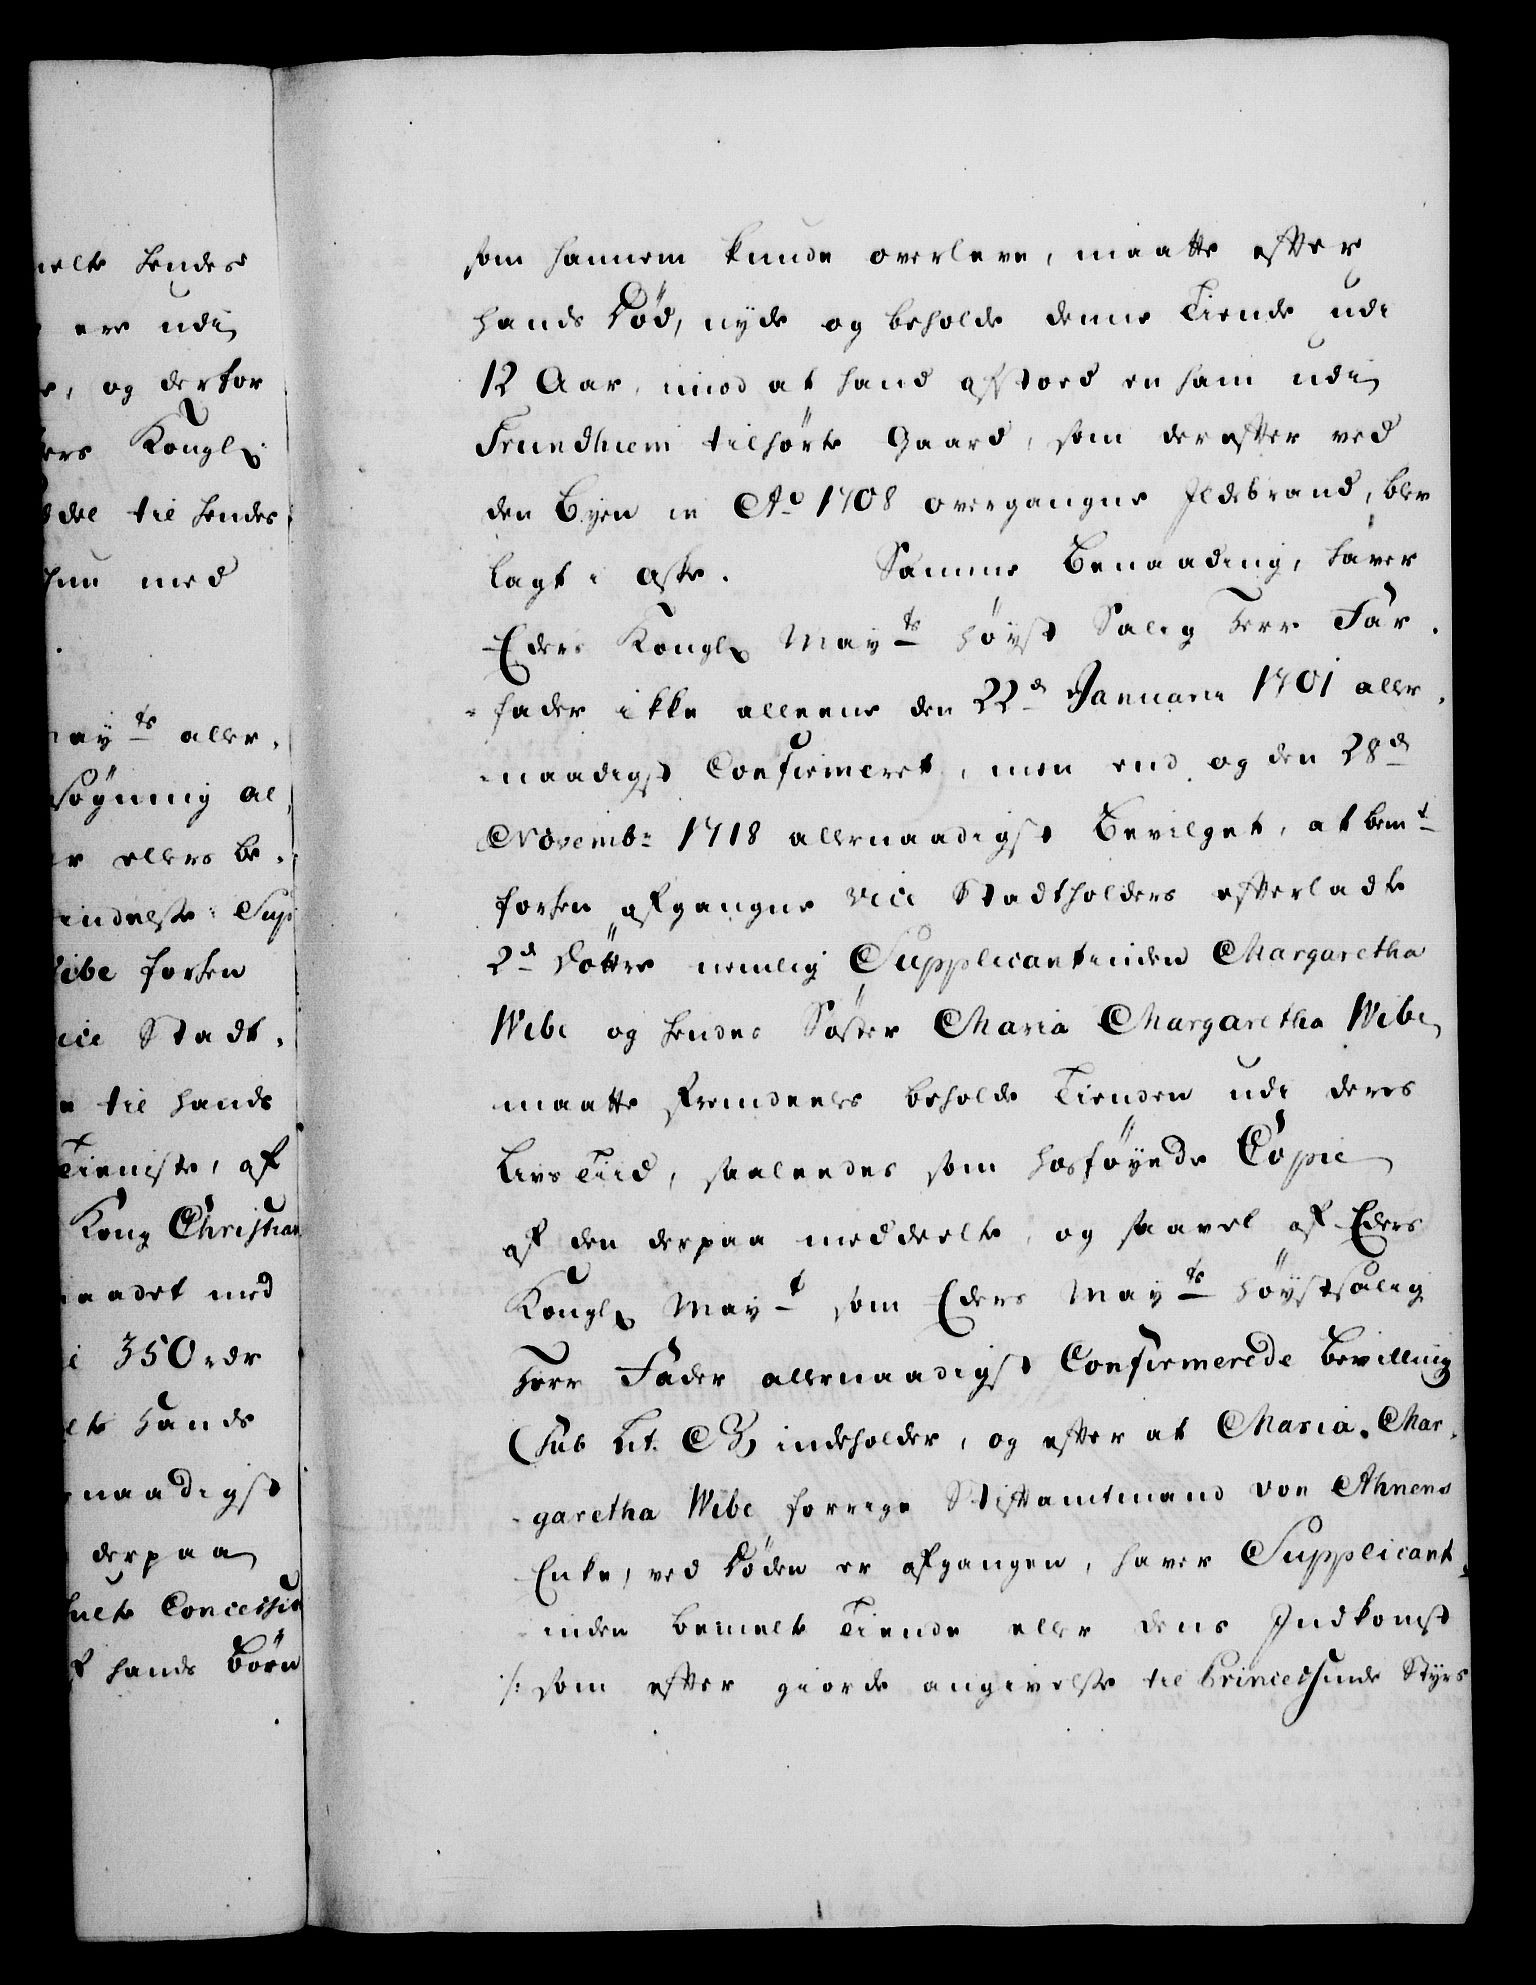 melte hendes
ere udi
og derfor
ers Kongl:
deel til hendes
hun med
May.ts aller-
søgning al-
er ellers be-
indelse: Sup
Wibe forhen
vice Stadt-
til hands
Tieniste, af
Kong Christian
naadet med
350 rdr
hands
naadigst
derpaa
Concession
hands Børn
som hannem kunde overleve, maatte efter
hands Død, nyde og beholde denne Tiende udi
12 Aar, imod at hand afstoed en ham udi
Trundhiem tilhørte Gaard, som derefter ved
den Byen in Ao 1708 overgangne Ildebrand, blev
lagt i Aske. Samme Benaading, haver
Eders Kongl: May.ts høyst Salig Herr Far-
-fader ikke alleene den 22d Januarii 1701 aller-
-naadigst Confirmeret, men end og den 28d
Novembr: 1718 allernaadigst Bevilget, at bemt
forhen afgangne vice Stadtholders efterladte
2d Døttre nemlig Supplicantinden Margaretha
Wibe og hendes Søster Maria Margaretha Wibe
maatte fremdeeles beholde Tienden udi deres
Livs Tiid, saaleedes som hosføyede Copie
af den derpaa meddeelte, og saavel af Eders
Kongl: May.t som Eders May.ts høystsalig
Herr Fader allernaadigst Confirmerede Bevilling
(sub Lit. B) indeholder, og efter at Maria Mar-
-garetha Wibe forrige Stiftamtmand von Ahnens
Enke, ved Døden er afgangen, haver Supplicant-
-inden bemelte Tiende eller dens Indkomst
/: som efter giorde angivelse til Princessinde Styrs